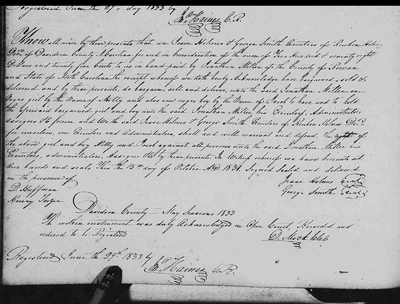 Registered June the day 1833 by
Haines P.R.
Know all men by these presents that we Isaac Holmes & George Smith Executors of Reuben Holmes
Decd of Davidson County for and in Consideration of the sum of Five Hundred & seventy eight
Dollars and twenty five cents to us in hand paid by Jonathan Miller of the County of Rowan
and State of North Carolina the receipt whereof we do hereby acknowledge have bargained, sold &
delivered and by these presents do bargain, sell and deliver unto the said Jonathan Miller one
Negro girl by the name of and also one negro boy by the name of to have and to hold
the said Jonathan Miller his Executors, Administrators
assigns forever and we the said Isaac Holmes & George Smith Executors of Reuben Holmes Decd.
our Executors and administrators, shall and will warrant and defend the right of
the above girl and boy and against all persons unto the said Jonathan Miller his
Executors, administrators, & assigns by these presents In Witness whereof we have hereunto set
our hands and seals this the 13th day of October A.D. 1831 Signed Sealed and delivered
in the presence of
Isaac Holmes seal
D. Huffman
George Smith seal
Henry
Davidson County May Sessions 1833
The within instrument was duly acknowledged in Open Court, Recorded and
ordered to be Registered
D. Mock Clk
Registered June the 29th 1833 by
Haines P.R.